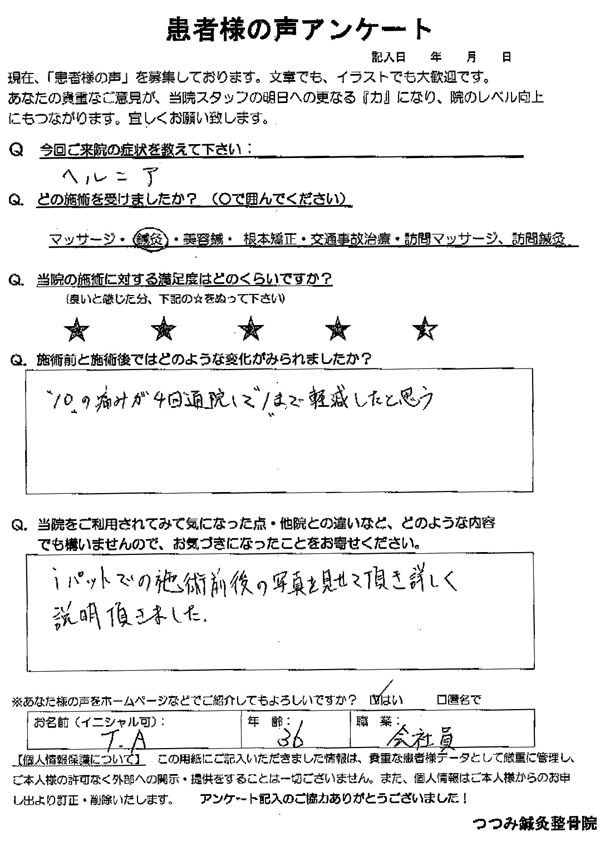 患者様の声アンケート
記入日 年 月 日
現在、「患者様の声」を募集しております。文章でも、イラストでも大歓迎です。
あなたの貴重なご意見が、当院スタッフの明日への更なる『力』になり、院のレベル向上
にもつながります。宜しくお願い致します。
Q 今回ご来院の症状を教えて下さい：
ヘルニア
Q. どの施術を受けましたか？（〇で囲んでください）
マッサージ・鍼灸・美容鍼・根本矯正・交通事故治療・訪問マッサージ、訪問鍼灸
Q. 当院の施術に対する満足度はどのくらいですか？
（良いと感じた分、下記の☆をぬって下さい）
Q. 施術前と施術後ではどのような変化がみられましたか？
"10"の痛みが4回通院して"1"まで軽減したと思う
Q. 当院をご利用されてみて気になった点・他院との違いなど、どのような内容
でも構いませんので、お気づきになったことをお寄せください。
iパットでの施術前後の写真を見せて頂き詳しく
説明頂きました.
※あなた様の声をホームページなどでご紹介してもよろしいですか？ ☑はい □匿名で
お名前（イニシャル可）： 年 齢： 職 業：
T.A 36 会社員
【個人情報保護について】 この用紙にご記入いただきました情報は、貴重な患者様データとして厳重に管理し、
ご本人様の許可なく外部への開示・提供をすることは一切ございません。また、個人情報はご本人様からのお申
し出より訂正・削除いたします。 アンケート記入のご協力ありがとうございました！
つつみ鍼灸整骨院